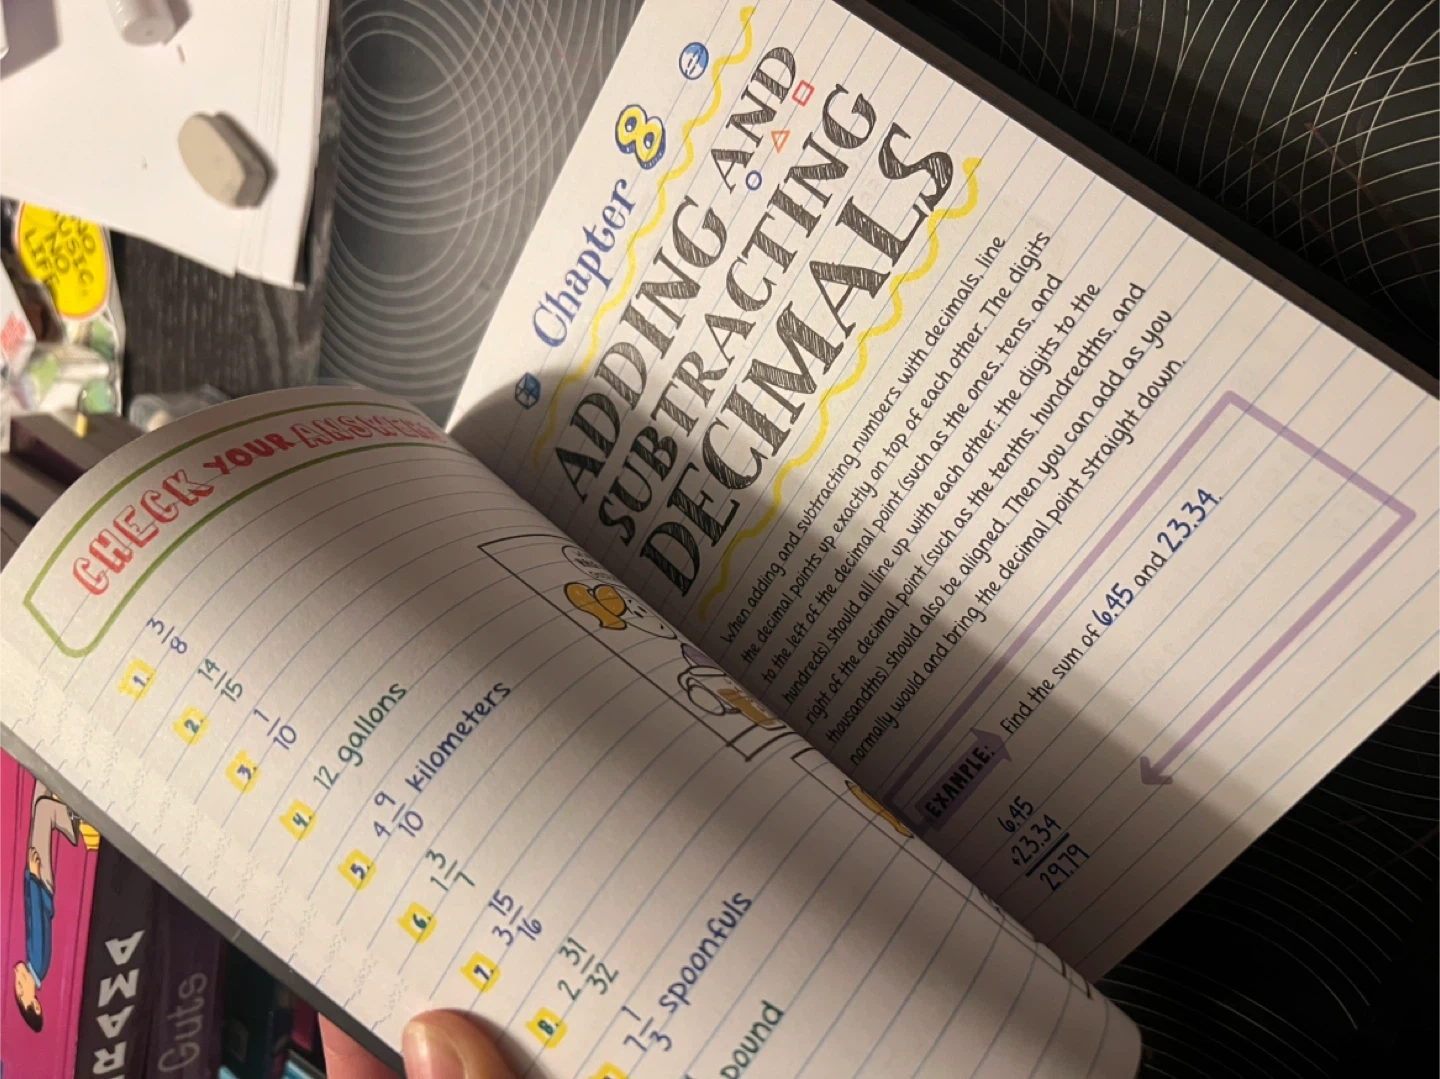 CHECK YOUR ANSWERS
1. 3/8
2. 14/15
3. 1/10
4. 12 gallons
5. 4 9/10 kilometers
6. 1 3/7
7. 3 15/16
8. 2 31/32
7 1/3 spoonfuls
pound
Chapter 8
ADDING AND
SUBTRACTING
DECIMALS
When adding and subtracting numbers with decimals, line
the decimal points up exactly on top of each other. The digits
to the left of the decimal point (such as the ones, tens, and
hundreds) should all line up with each other; the digits to the
right of the decimal point (such as the tenths, hundredths, and
thousandths) should also be aligned. Then you can add as you
normally would and bring the decimal point straight down.
EXAMPLE: Find the sum of 6.45 and 23.34.
6.45
+23.34
29.79
AMAR
Guts